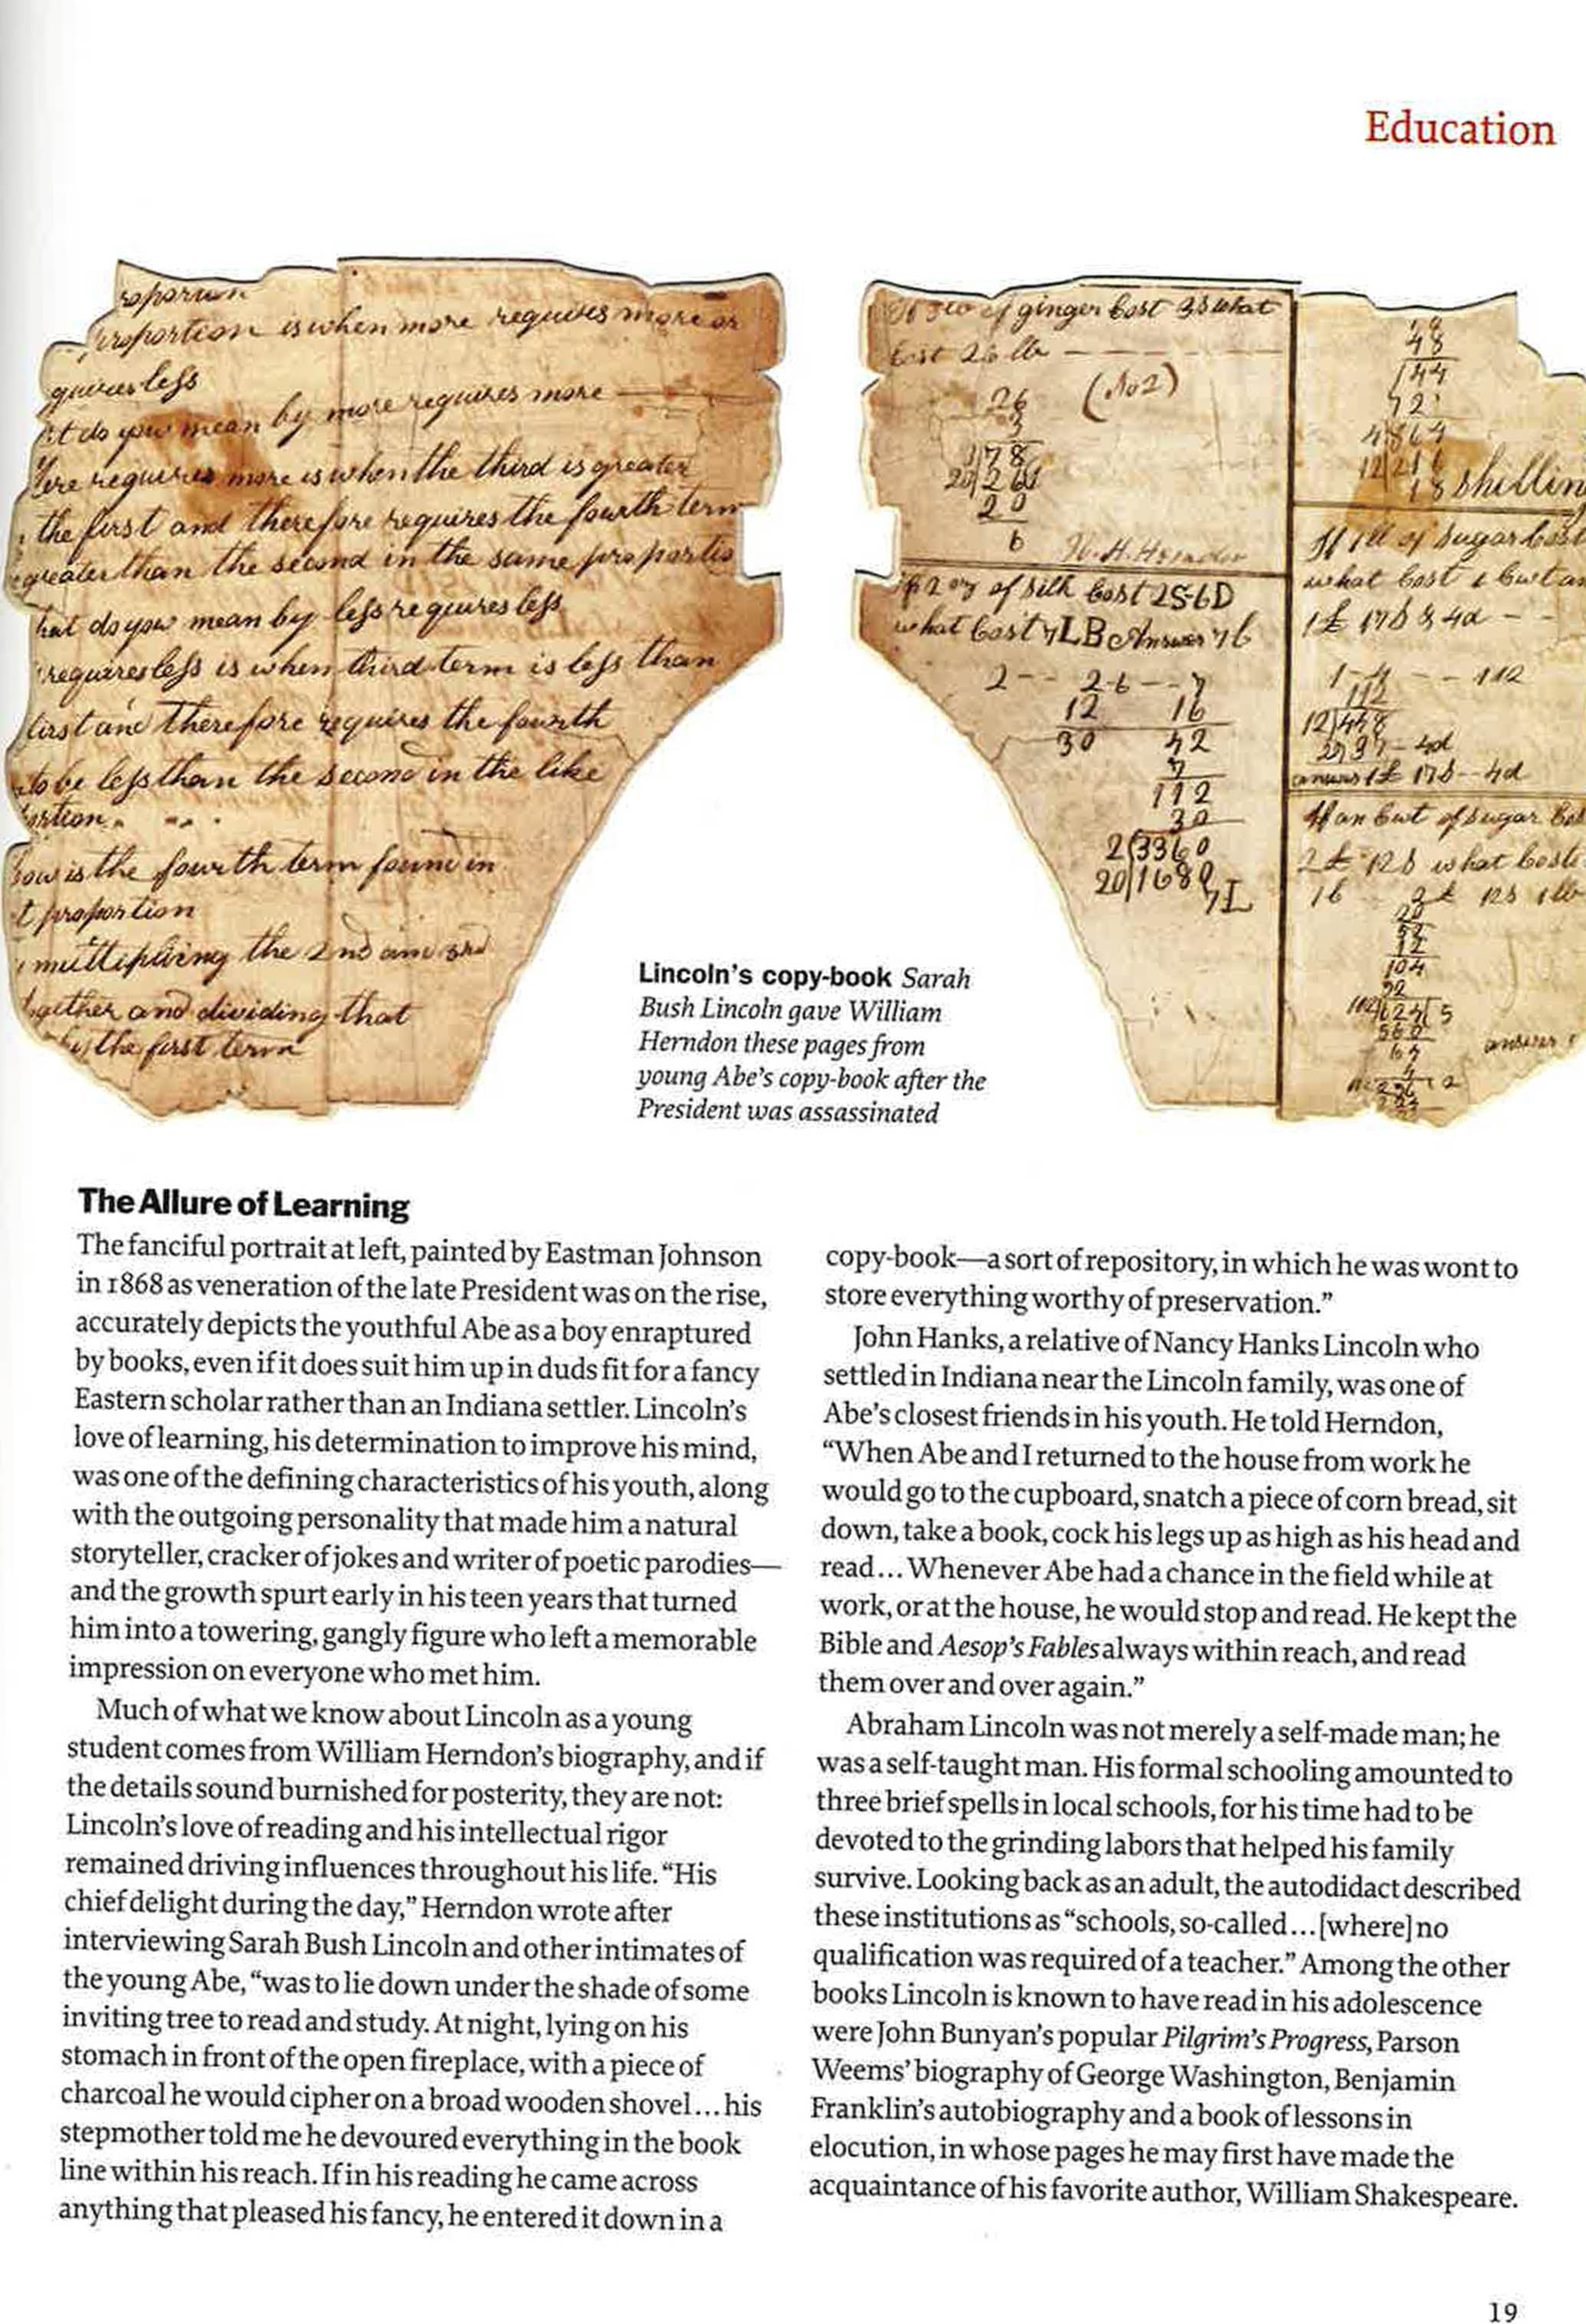 Education
roportion
proportion is when more requires more or
quires less
at do you mean by more requires more
requires more is when the third is greater
the first and therefore requires the fourth term
greater than the second in the same proportio
hat do you mean by less requires less
requires less is when third term is less than
first and therefore requires the fourth
to be less than the second in the like
ortion
how is the fourth term found in
t proportion
multiplying the 2nd and 3rd
ogether and dividing that
by the first term
of ginger Cost 3s what
Cost 26 lb
(No 2)
26
3
78
20
6
W. H. Herndon
If 2 oz of Silk Cost 2S-6D
what Cost 7 LB Answer 7 L
2 -- 2-6 -- 7
12 16
30 42
7
112
30
2(3360
20(1680
7L
48
144
72
4 864
12 216
18 shillin
If 1 lb of Sugar Cost
what Cost 1 Cwt an
1£ 17s & 4d --
1-4 -- 112
112
12)448
37-4d
1£ 17s--4d
If an Cwt of Sugar Cos
2£ 12s what Cost
16 2£ 12s 1lb
20
52
12
104
52
112)624(5
560
64
4
answer
Lincoln's copy-book Sarah
Bush Lincoln gave William
Herndon these pages from
young Abe's copy-book after the
President was assassinated
The Allure of Learning
The fanciful portrait at left, painted by Eastman Johnson
in 1868 as veneration of the late President was on the rise,
accurately depicts the youthful Abe as a boy enraptured
by books, even if it does suit him up in duds fit for a fancy
Eastern scholar rather than an Indiana settler. Lincoln's
love of learning, his determination to improve his mind,
was one of the defining characteristics of his youth, along
with the outgoing personality that made him a natural
storyteller, cracker of jokes and writer of poetic parodies—
and the growth spurt early in his teen years that turned
him into a towering, gangly figure who left a memorable
impression on everyone who met him.
Much of what we know about Lincoln as a young
student comes from William Herndon's biography, and if
the details sound burnished for posterity, they are not:
Lincoln's love of reading and his intellectual rigor
remained driving influences throughout his life. “His
chief delight during the day,” Herndon wrote after
interviewing Sarah Bush Lincoln and other intimates of
the young Abe, “was to lie down under the shade of some
inviting tree to read and study. At night, lying on his
stomach in front of the open fireplace, with a piece of
charcoal he would cipher on a broad wooden shovel ... his
stepmother told me he devoured everything in the book
line within his reach. If in his reading he came across
anything that pleased his fancy, he entered it down in a
copy-book—a sort of repository, in which he was wont to
store everything worthy of preservation.”
John Hanks, a relative of Nancy Hanks Lincoln who
settled in Indiana near the Lincoln family, was one of
Abe's closest friends in his youth. He told Herndon,
“When Abe and I returned to the house from work he
would go to the cupboard, snatch a piece of corn bread, sit
down, take a book, cock his legs up as high as his head and
read ... Whenever Abe had a chance in the field while at
work, or at the house, he would stop and read. He kept the
Bible and Aesop's Fables always within reach, and read
them over and over again.”
Abraham Lincoln was not merely a self-made man; he
was a self-taught man. His formal schooling amounted to
three brief spells in local schools, for his time had to be
devoted to the grinding labors that helped his family
survive. Looking back as an adult, the autodidact described
these institutions as “schools, so-called ... [where] no
qualification was required of a teacher.” Among the other
books Lincoln is known to have read in his adolescence
were John Bunyan's popular Pilgrim's Progress, Parson
Weems' biography of George Washington, Benjamin
Franklin's autobiography and a book of lessons in
elocution, in whose pages he may first have made the
acquaintance of his favorite author, William Shakespeare.
19